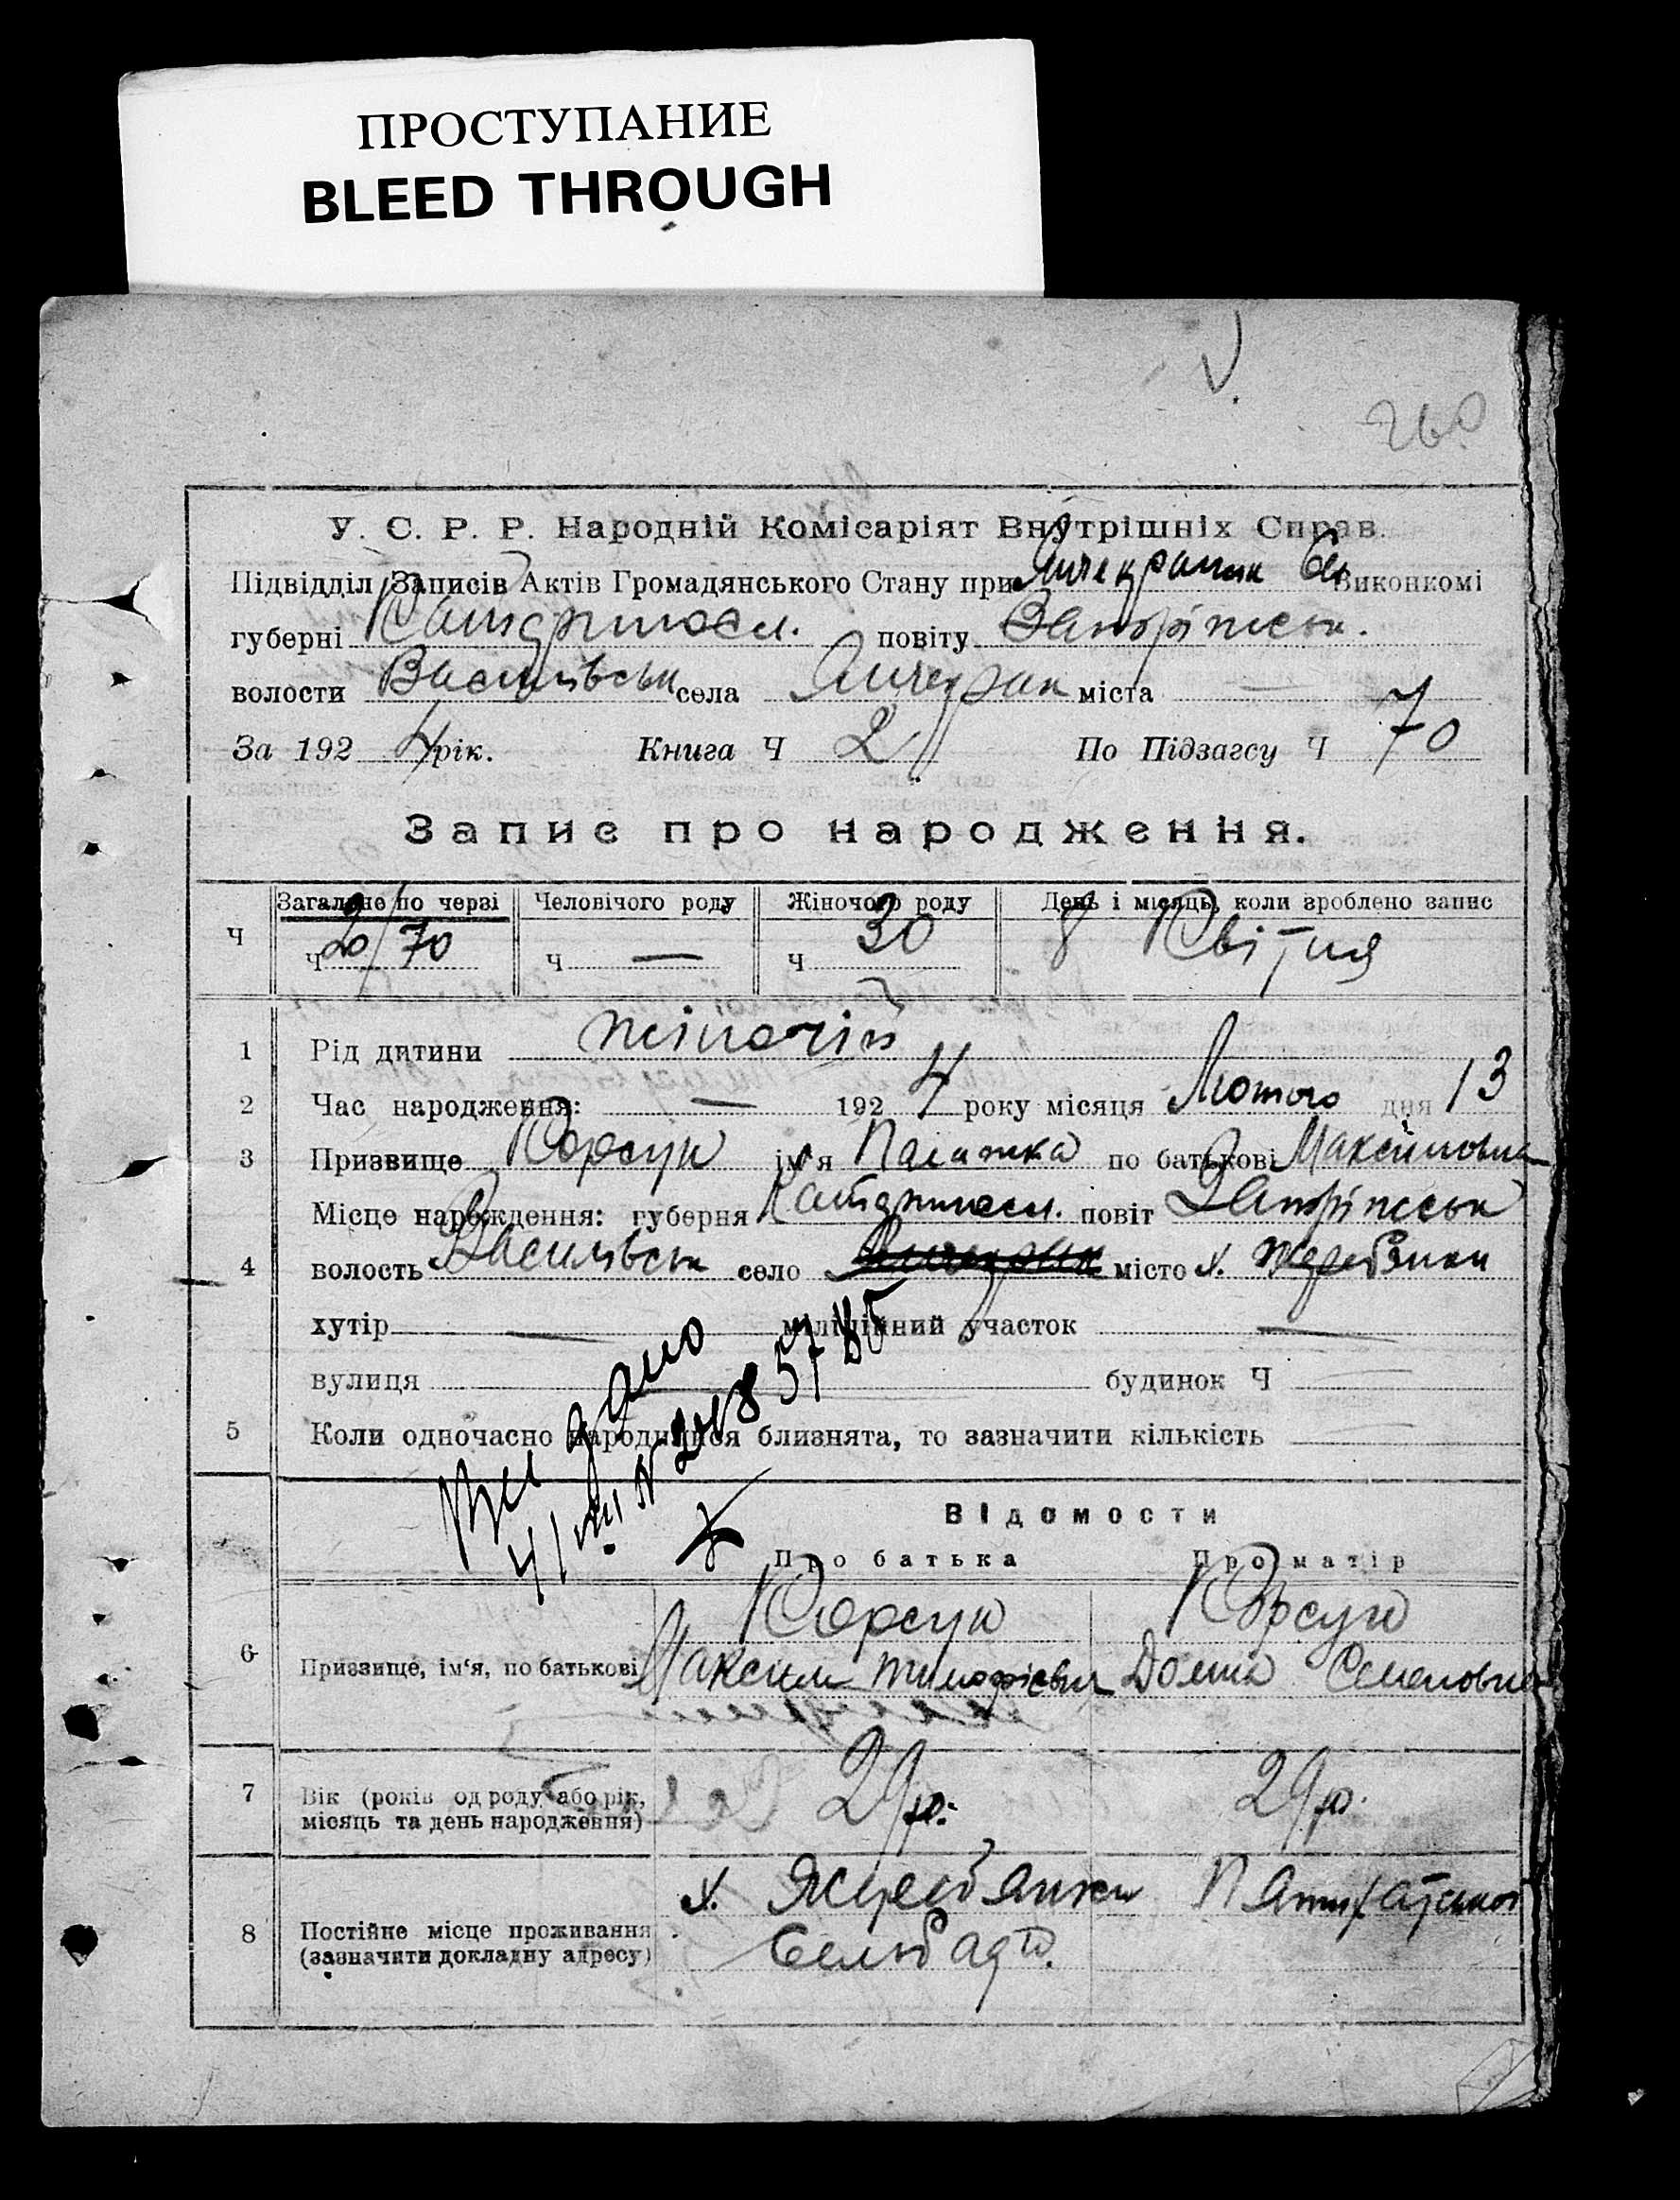 ПРОСТУПАНИЕ
BLEED THROUGH
260
У. С. Р. Р. Народній Комісаріят Внутрішніх Справ.
Підвідділ Записів Актів Громадянського Стану при Янчекрацьк Виконкомі
губерні Катериносл. повіту Запоріжськ.
волости Василівськ села Янчекрак міста —
За 1924 рік. Книга Ч 2 По Підзагсу Ч 70
Запис про народження.
Загальне по черзі Человічого роду Жіночого роду День і місяць, коли зроблено запис
Ч ч 2/70 ч — ч 30 8 Квітня
1 Рід дитини жіночій
2 Час народження: — 1924 року місяця Лютого дня 13
3 Призвище Корсун ім'я Палажка по батькові Максимовна
Місце нарождення: губерня Катериносл. повіт Запоріжськ
4 волость Василівськ село Янчекрак місто х. Жеребянки
хутір — міліційний участок —
вулиця будинок Ч
5 Коли одночасно народилися близнята, то зазначити кількість
Видано
4/VIII N 2118 57
Відомости
Про батька Про матір
Корсун Корсун
6 Призвище, ім'я, по батькові Максим Тимофієвич Домна Семеновна
7 Вік (років од роду або рік, 29 р. 29 р.
місяць та день народження)
х. Жеребянки Пятихатської
8 Постійне місце проживання
(зазначити докладну адресу) Сельради.